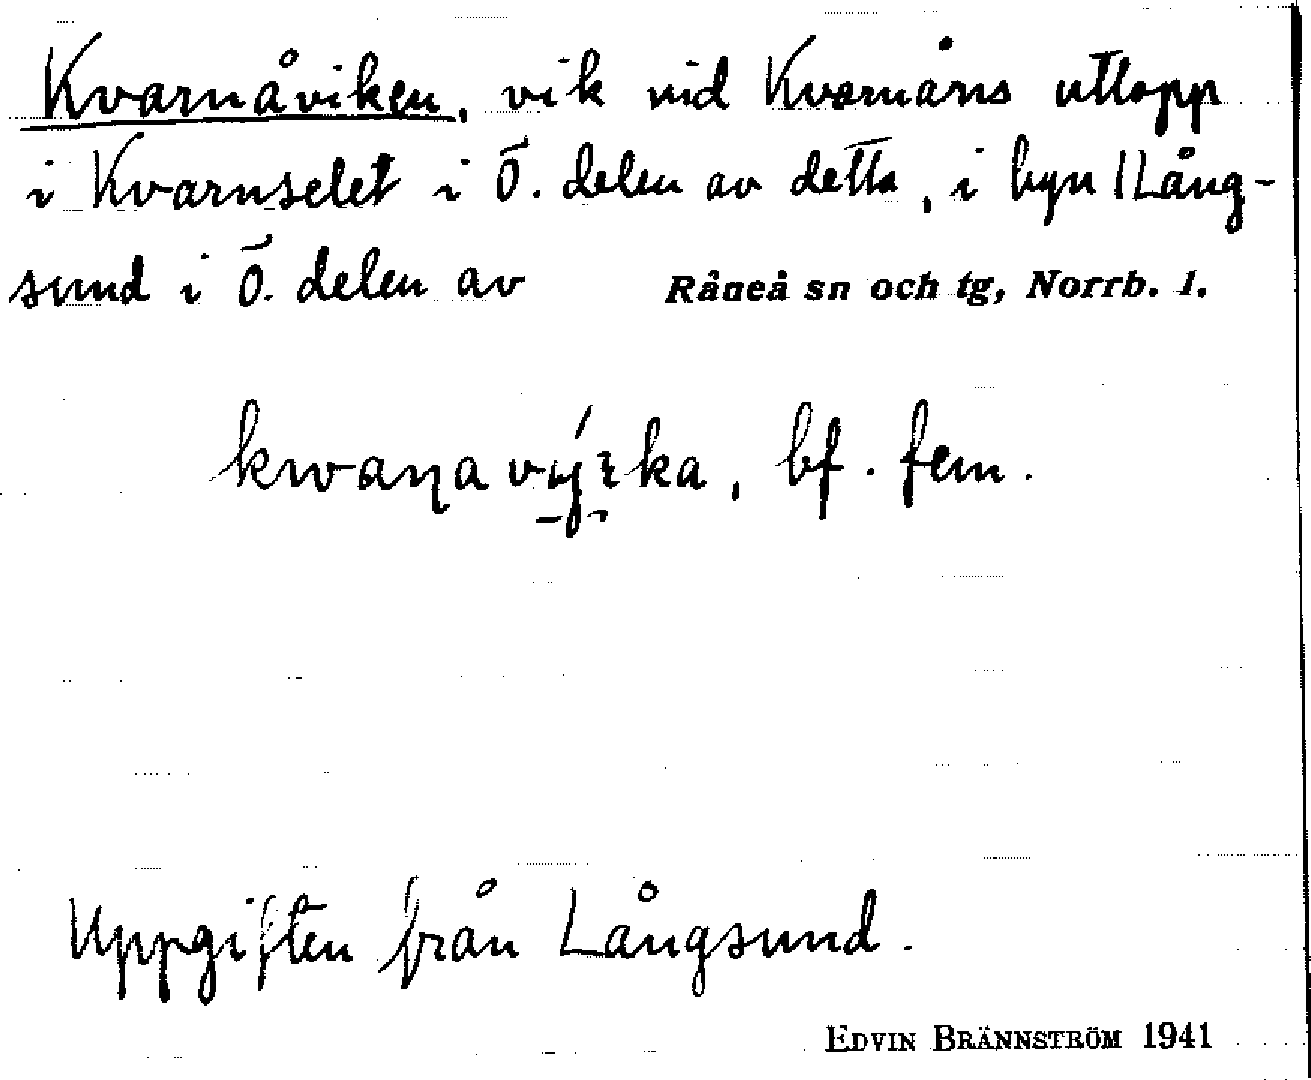 Kvarnåviken, vik vid Kvarnåns utlopp
i Kvarnselet i Ö. delen av detta, i byn Lång-
sund i Ö. delen av Råneå sn och tg, Norrb. l.
bf. fem.
Uppgiften från Långsund.
EDVIN BRÄNNSTRÖM 1941